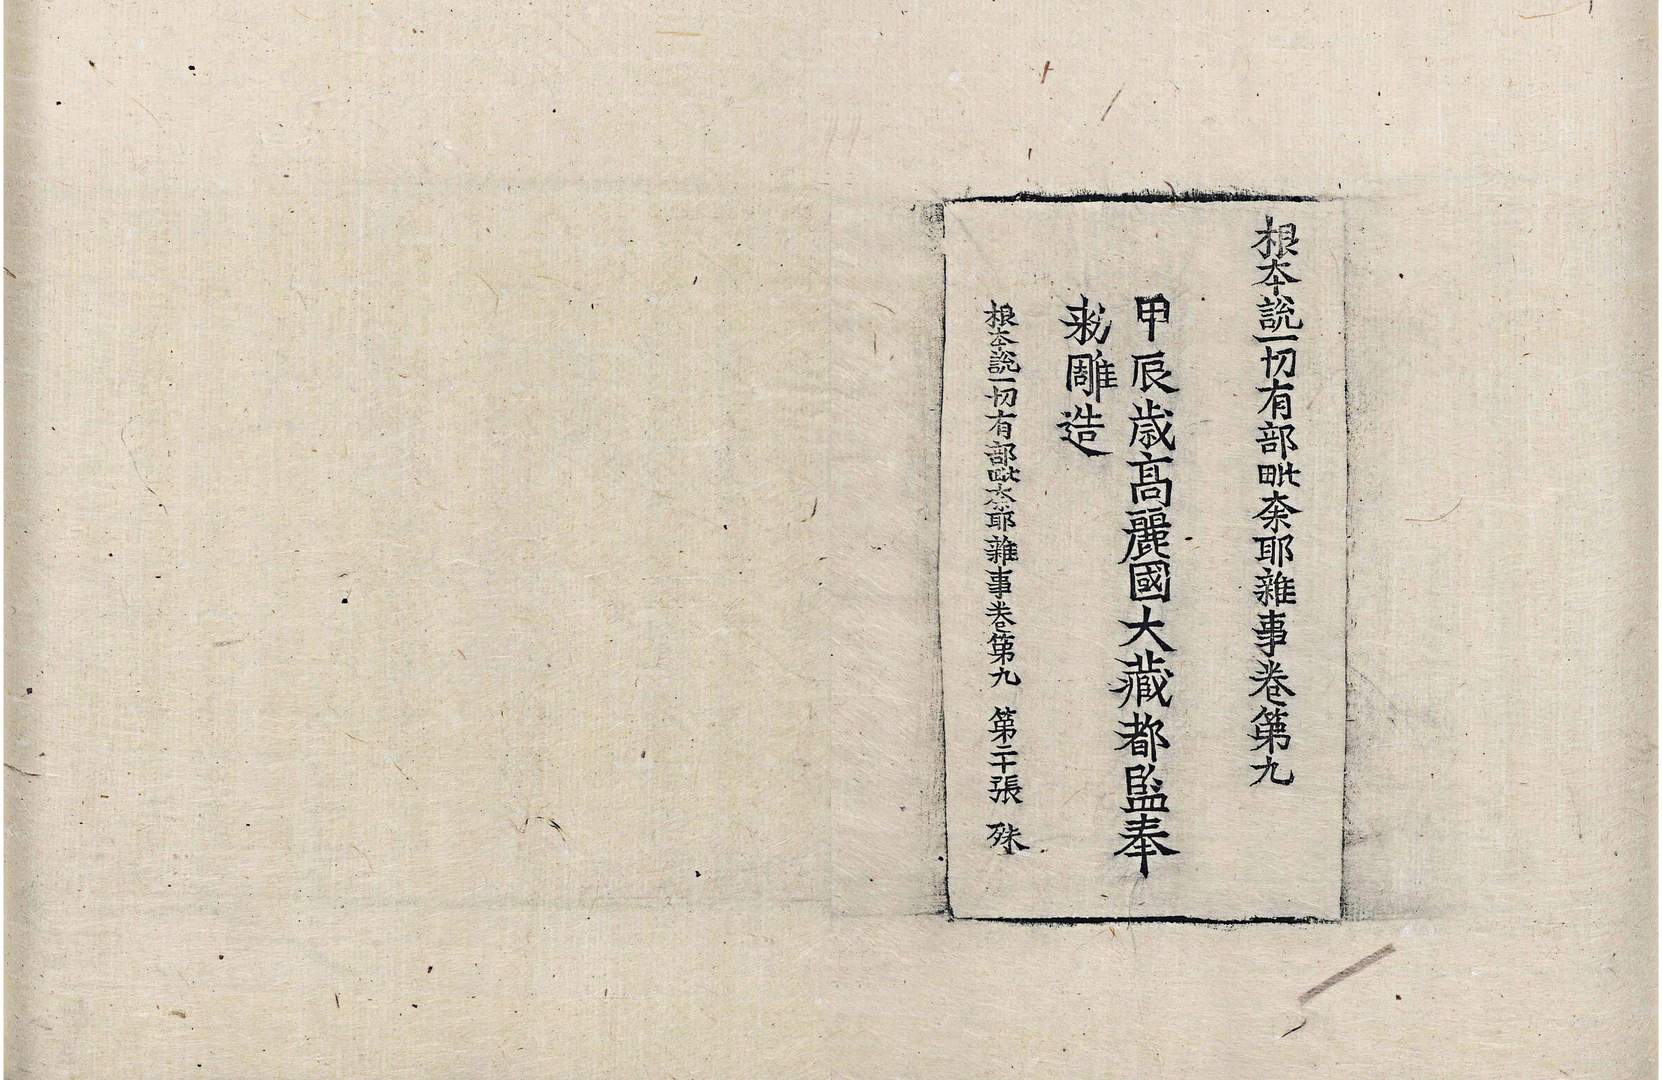 根本說一切有部毗奈耶雜事卷第九
甲辰歲高麗國大藏都監奉
勑雕造
根本說一切有部毗奈耶雜事卷第九 第二十張 殊